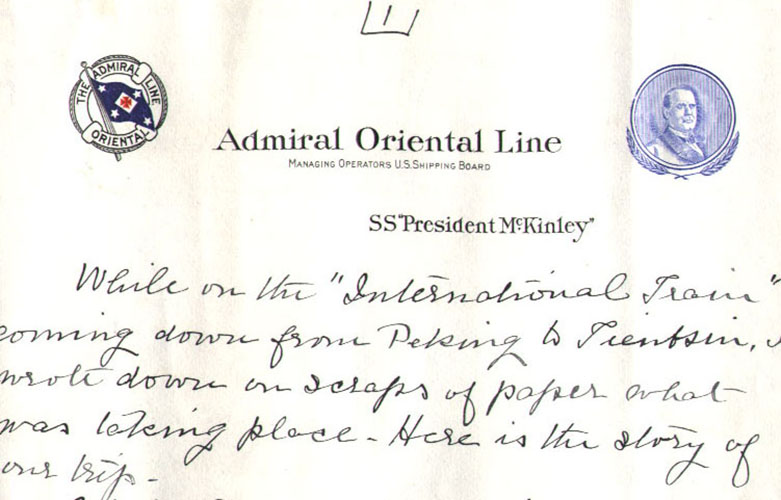 1
THE ADMIRAL LINE
ORIENTAL
Admiral Oriental Line
MANAGING OPERATORS U.S. SHIPPING BOARD
SS "President McKinley"
While on the "International Train"
coming down from Peking to Tientsin, I
wrote down on scraps of paper what
was taking place - Here is the story of
our trip.